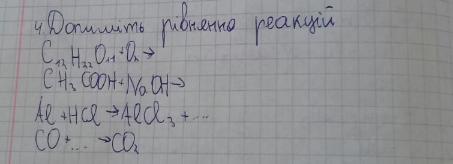 4. Допишіть рівняння реакцій
C₁₂H₂₂O₁₁+O₂→
CH₃COOH+NaOH→
Al+HCl→AlCl₃+...
CO+...→CO₂